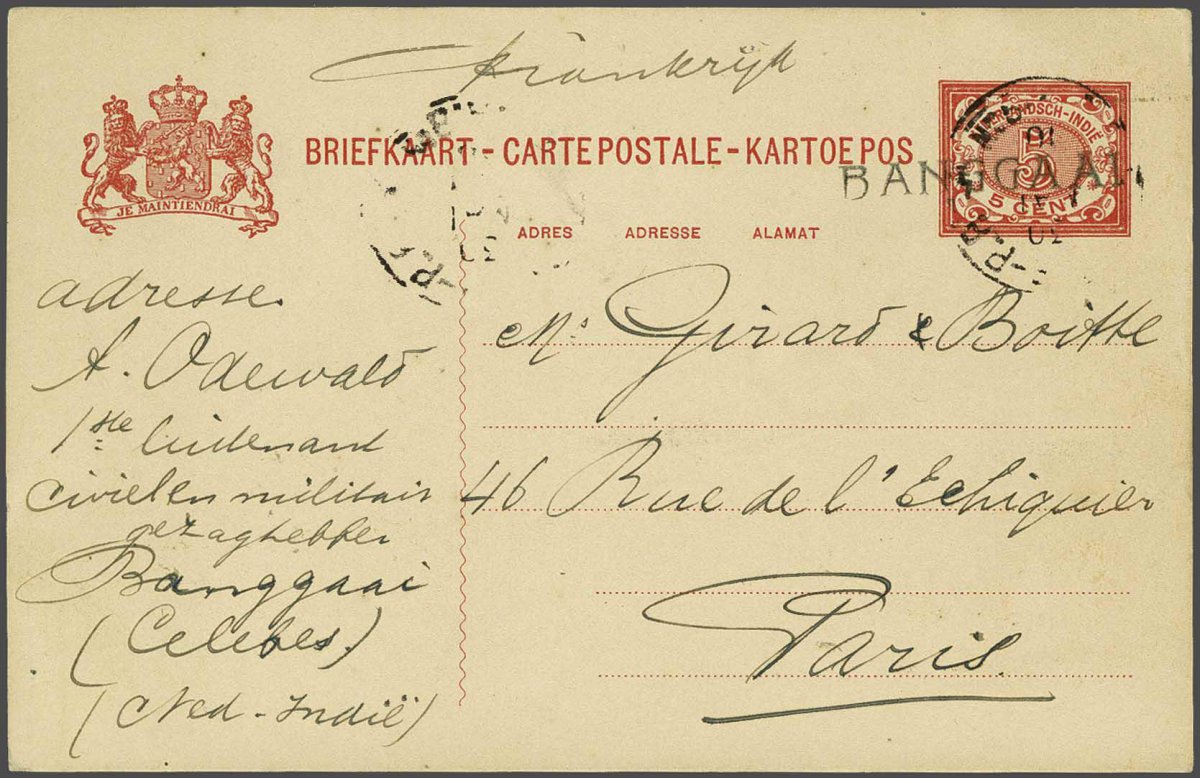 Frankrijk
BRIEFKAART - CARTE POSTALE - KARTOEPOS
JE MAINTIENDRAI
NEDERLANDSCH-INDIË
5
5 CENT
BANGGAAI
ADRES ADRESSE ALAMAT
adresse.
A. Odewald
1ste luitenant
civiel en militair
gezaghebber
Banggaai
(Celebes.)
(Ned-Indië)
Ms Girard & Boitte
46 Rue de l'Echiquier
Paris.